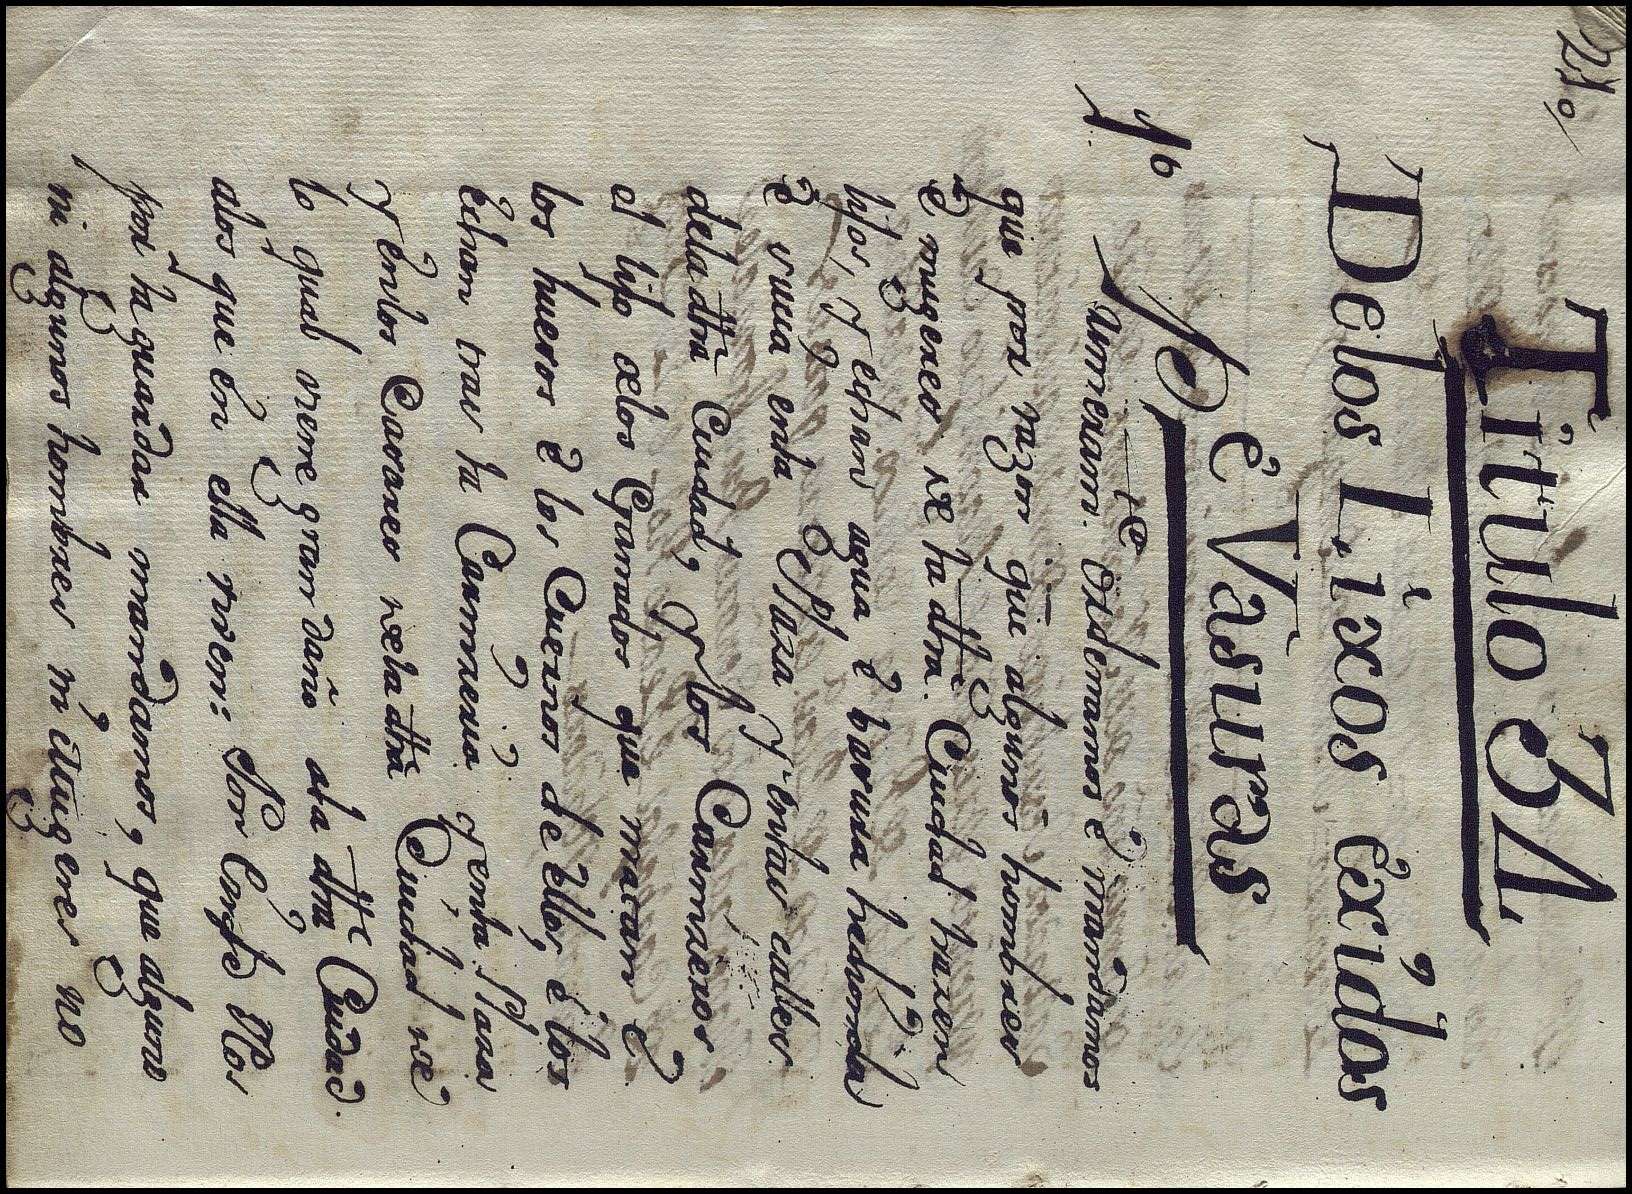 21.
Titulo 34
Delos Lixos exidos
é Vasuras
1º
Primeram.te ordenamos é mandamos
que por razon que algunos hombres
é mugeres de la dha. Ciudad trahen
lijos, y echan agua é basura hedionda
é sucia enla Plaza y enlas calles
dela dha Ciudad, y los Carniceros
el lijo delos Ganados que matan é
los huesos é los Cuernos de ellos é los
echan tras la Carniceria, y enla Plaza
y enlos Carneros dela dha Ciudad de
lo qual viene gran daño ala dha Ciudad.
alos que en ella viven: Por Ende Nos
por la guardar mandamos, que alguno
ni algunos hombres ni Mugeres no